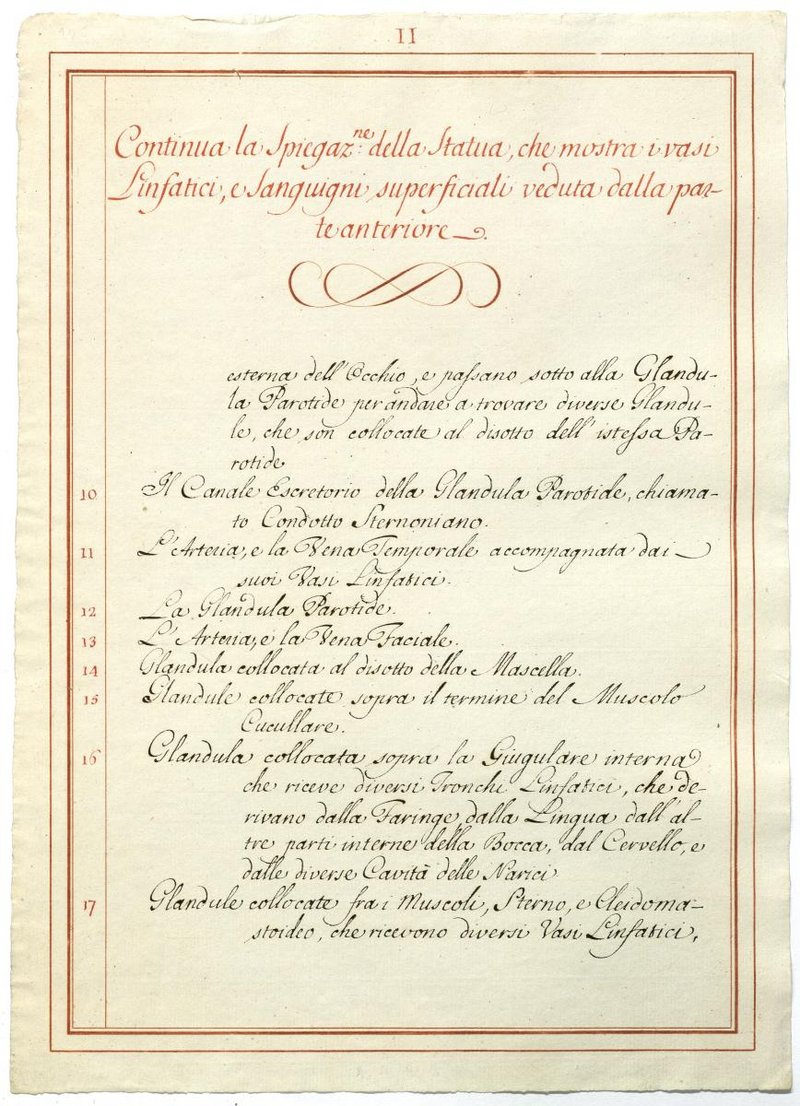 II
Continua la Spiegaz.ne della Statua, che mostra i vasi
Linfatici, e Sanguigni superficiali veduta dalla par-
te anteriore.
esterna dell'Occhio, e passano sotto alla Glandu-
la Parotide per andare a trovare diverse Glandu-
le, che son collocate al disotto dell'istessa Pa-
rotide
10 Il Canale Escretorio della Glandula Parotide, chiama-
to Condotto Sternoniano.
11 L'Arteria, e la Vena Temporale accompagnata dai
suoi Vasi Linfatici.
12 La Glandula Parotide.
13 L'Arteria, e la Vena Faciale.
14 Glandula collocata al disotto della Mascella.
15 Glandule collocate sopra il termine del Muscolo
Cucullare.
16 Glandula collocata sopra la Giugulare interna
che riceve diversi Tronchi Linfatici, che de-
rivano dalla Faringe, dalla Lingua dall'al-
tre parti interne della Bocca, dal Cervello, e
dalle diverse Cavità delle Narici
17 Glandule collocate fra i Muscoli, Sterno, e Cleidoma-
stoideo, che ricevono diversi Vasi Linfatici,